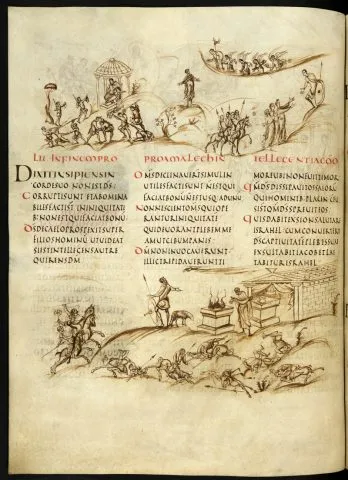 LII INFINEMPRO PROAMALECHIN TELLEGENTIA
DIXITINSIPIENSIN
CORDESUO NONESTDS·
CORRUPTISUNTETABOMINA
BILESFACTISUNT INIQUITATI
B·NONESTQUIFACIATBONU
DSDECAELOPROSPEXITSUPER
FILIOSHOMINU UTUIDEAT
SIESTINTELLEGENSAUTRE
QUIRENSDM
OMSDECLINAUERSIMULIN
UTILESFACTISUNT NESTQUI
FACIATBONUNESTUSQADUNU
NONNESCIENTOMSQUIOPE
RANTURINIQUITATE
QUIDEUORANTPLEBEMME
AMUTCIBUMPANIS
DMNONINUOCAUERUNT
ILLICTREPIDAUERUNTTI
MOREUBINONFUITTIMOR
QMDSDISSIPAUITOSSAEORU
QUIHOMINIB·PLACENTCON
QMDSSPREUITEOS
QUISDABITEXSIONSALUTARE
ISRAHEL CUMCONUERTERIT
DSCAPTIUITATEPLEBISSUE
EXSULTABITIACOBETLAE
TABITURISRAHEL